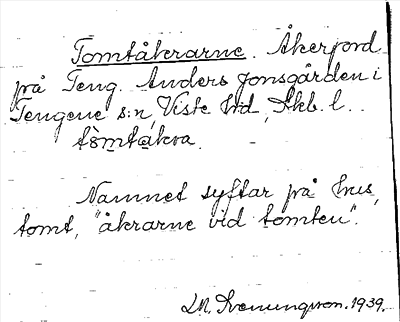 Tomtåkrarne. Åkerjord
på Teng. Anders Jonsgården i
Tengene s:n, Viste hd, Skb. l.
tòmtakra.
Namnet syftar på hus,
tomt, "åkrarne vid tomten".
M. Svenungsson. 1939.